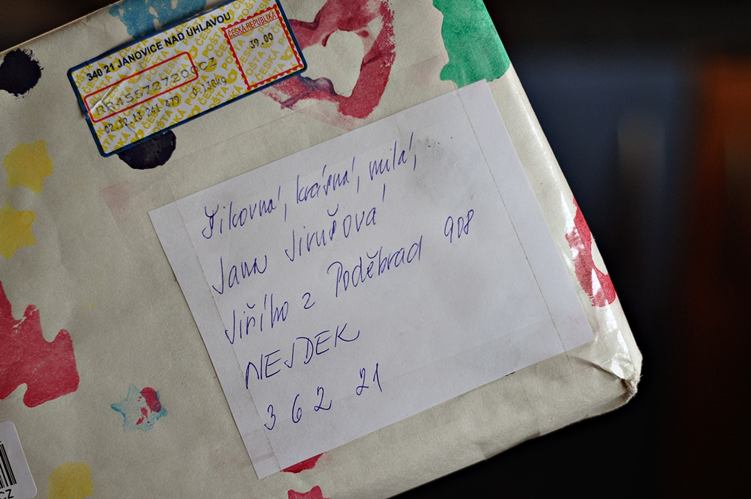 340 21 JANOVICE NAD ÚHLAVOU
ČESKÁ REPUBLIKA
39,00
RR455727200CZ
02.12.13
Šikovná, krásná, milá, ...
Jana Jirušová
Jiřího z Poděbrad 908
NEJDEK
362 21
CZ